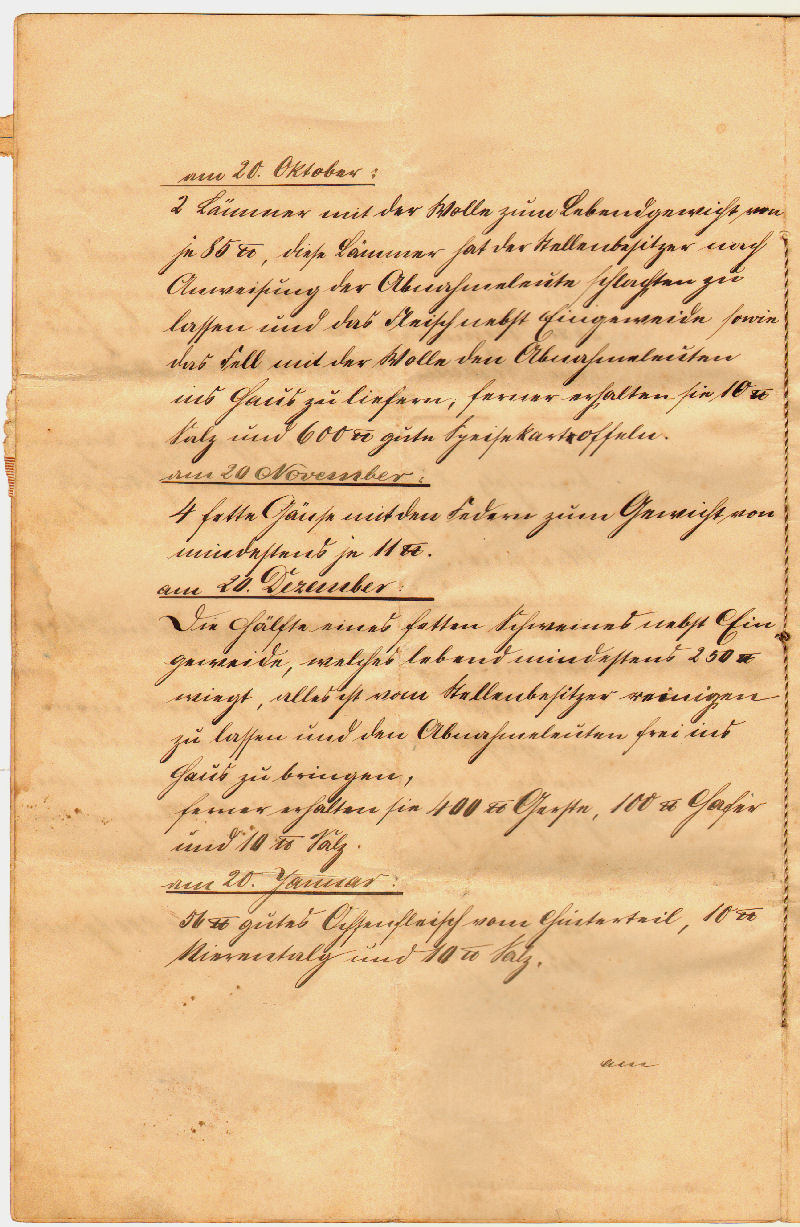 am 20. Oktober:
2 Lämmer mit der Wolle zum Lebendgewicht von
je 85 ℔, diese Lämmer hat der Stellenbesitzer nach
Anweisung der Abnahmeleute schlachten zu
lassen und das Fleisch nebst Eingeweide sowie
das Fell mit der Wolle den Abnahmeleuten
ins Haus zu liefern, ferner erhalten sie 10 ℔
Salz und 600 ℔ gute Speisekartoffeln.
am 20 November:
4 fette Gänse mit den Federn zum Gewicht von
mindestens je 11 ℔.
am 20. Dezember:
Die Hälfte eines fetten Schweines nebst Ein
geweide, welches lebend mindestens 250 ℔
wiegt, alles ist vom Stellenbesitzer reinigen
zu lassen und den Abnahmeleuten frei ins
Haus zu bringen,
ferner erhalten sie 400 ℔ Gerste, 100 ℔ Hafer
und 10 ℔ Salz.
am 20. Januar:
56 ℔ gutes Ochsenfleisch vom Hinterteil, 10 ℔
Nierentalg und 10 ℔ Salz.
am